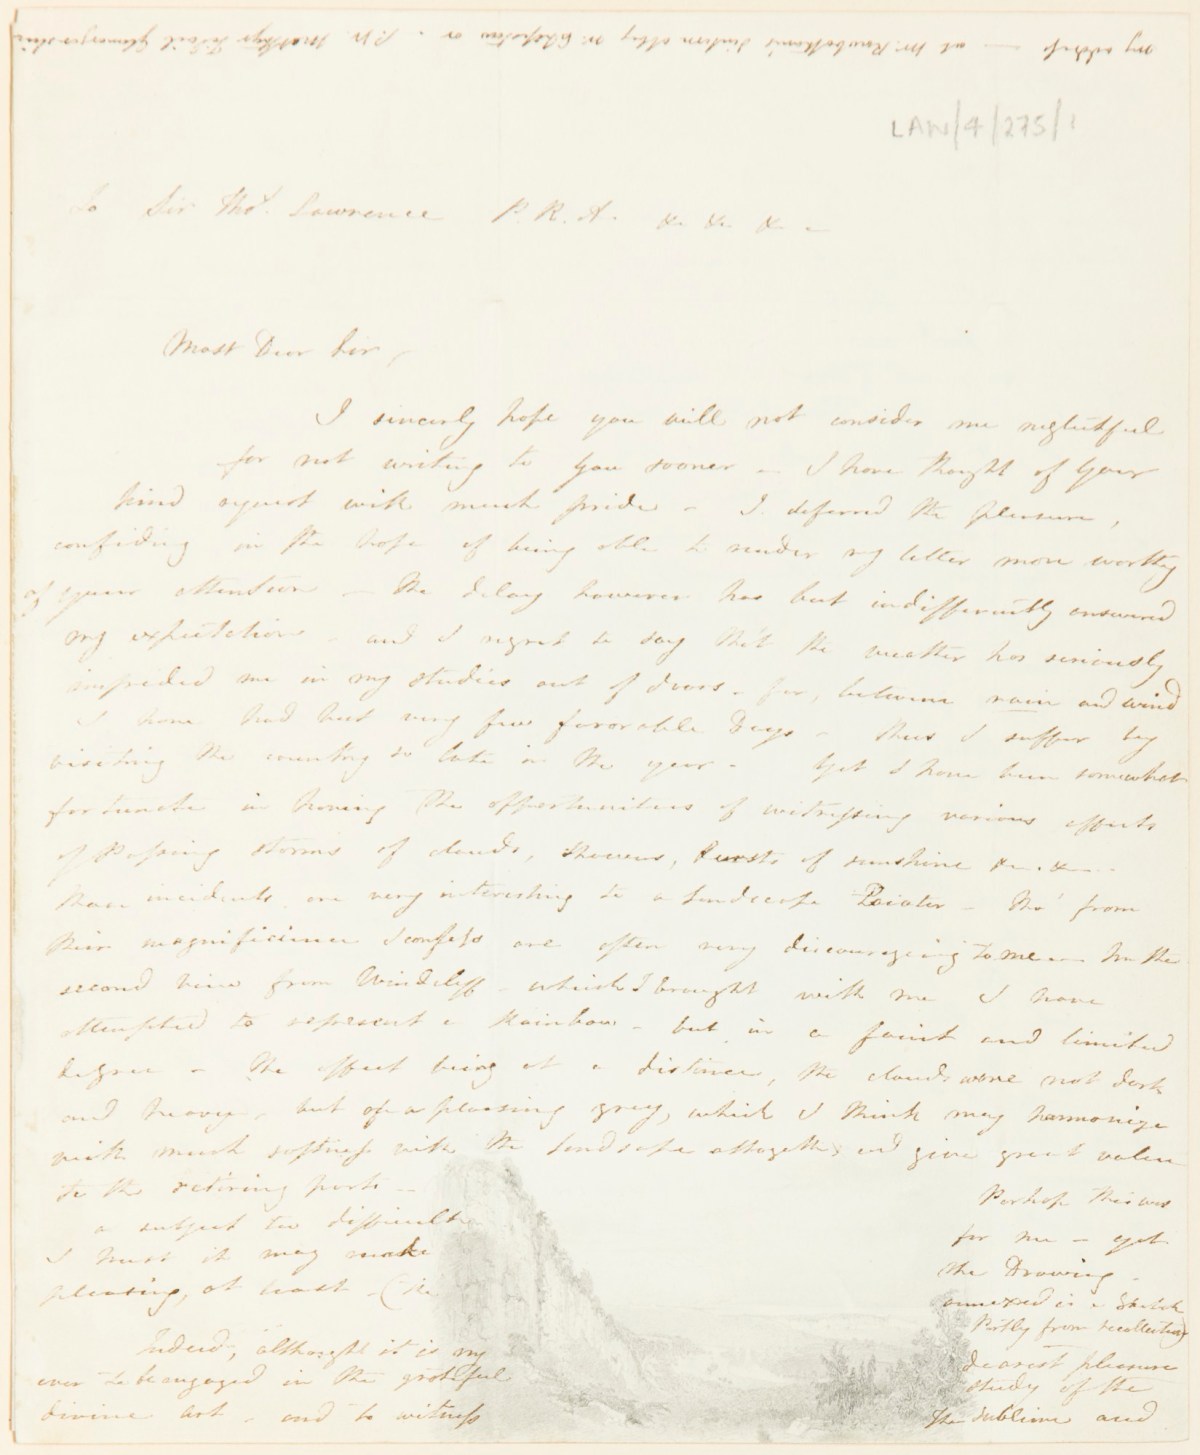 my address — at Mr. Rowbotham's Tintern Abbey Nr. Chepstow or. P.O. Merthyr Tidvil Glamorganshire
LAW/4/275/1
To Sir Thos. Lawrence P. R. A. &c &c &c —
Most Dear Sir,
I sincerly hope you will not consider me neglectful
for not writing to you sooner — I have thought of your
kind request with much pride — I deferred the pleasure,
confiding in the hope of being able to render my letter more worthy
of your attention — The delay however has but indifferently answered
my expectations — and I regret to say that the weather has seriously
impeded me in my studies out of doors — for, between rain and wind
I have had but very few favorable Days — thus I suffer by
visiting the country so late in the year — Yet I have been somewhat
fortunate in having the opportunities of witnessing various effects
of Passing storms of clouds, showers, bursts of sunshine &c. &c —
these incidents are very interesting to a landscape Painter — tho' from
their magnificence I confess are often very discourageing to me — In the
second view from Windcliff — which I brought with me I have
attempted to represent a Rainbow — but in a faint and limited
degree — The effect being at a distance, the clouds were not dark
and heavy — but of a pleasing grey, which I think may harmonize
with much softness with the landscape altogether and give great value
to the retiring parts — Perhaps this was
a subject too difficult for me — yet
I trust it may make the Drawing
pleasing, at least — (the annexed is a Sketch
Partly from recollection)
Indeed, althought it is my dearest pleasure
ever to be engaged in the grateful study of the
divine art — and to witness the sublime and